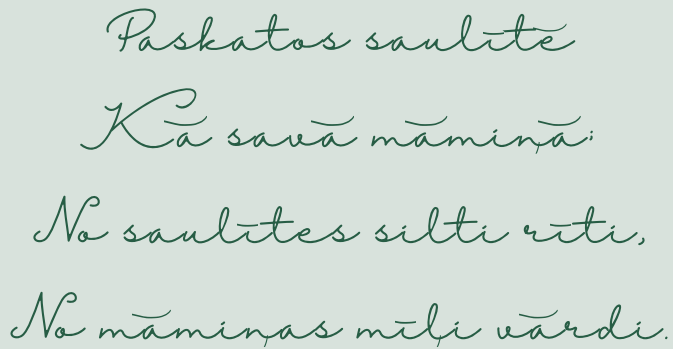 Paskatos saulītē
Kā savā māmiņā;
No saulītes silti rīti,
No māmiņas mīļi vārdi.